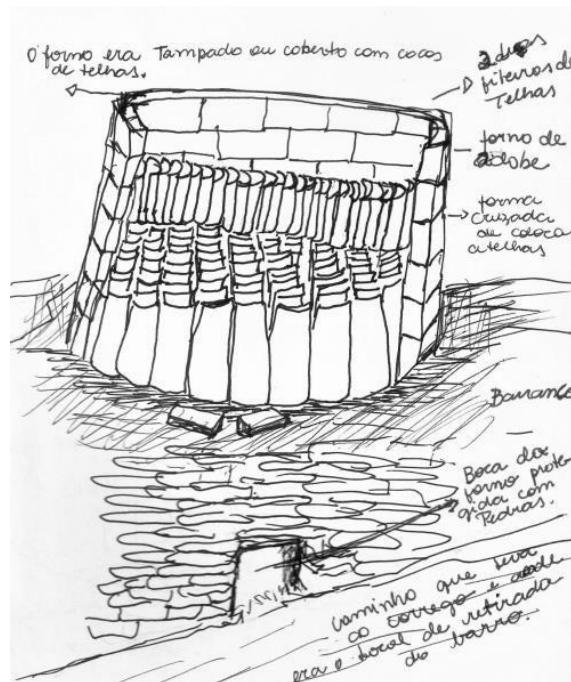 O forno era Tampado ou coberto com cacos
de telhas.
2 duas
fiteiros de
Telhas
forno de
adobe
forma
cruzada
de coloca
a telhas
Barranco
Boca do
forno prote
gida com
Pedras.
caminho que leva
ao corrego e onde
era o local de retirada
do barro.